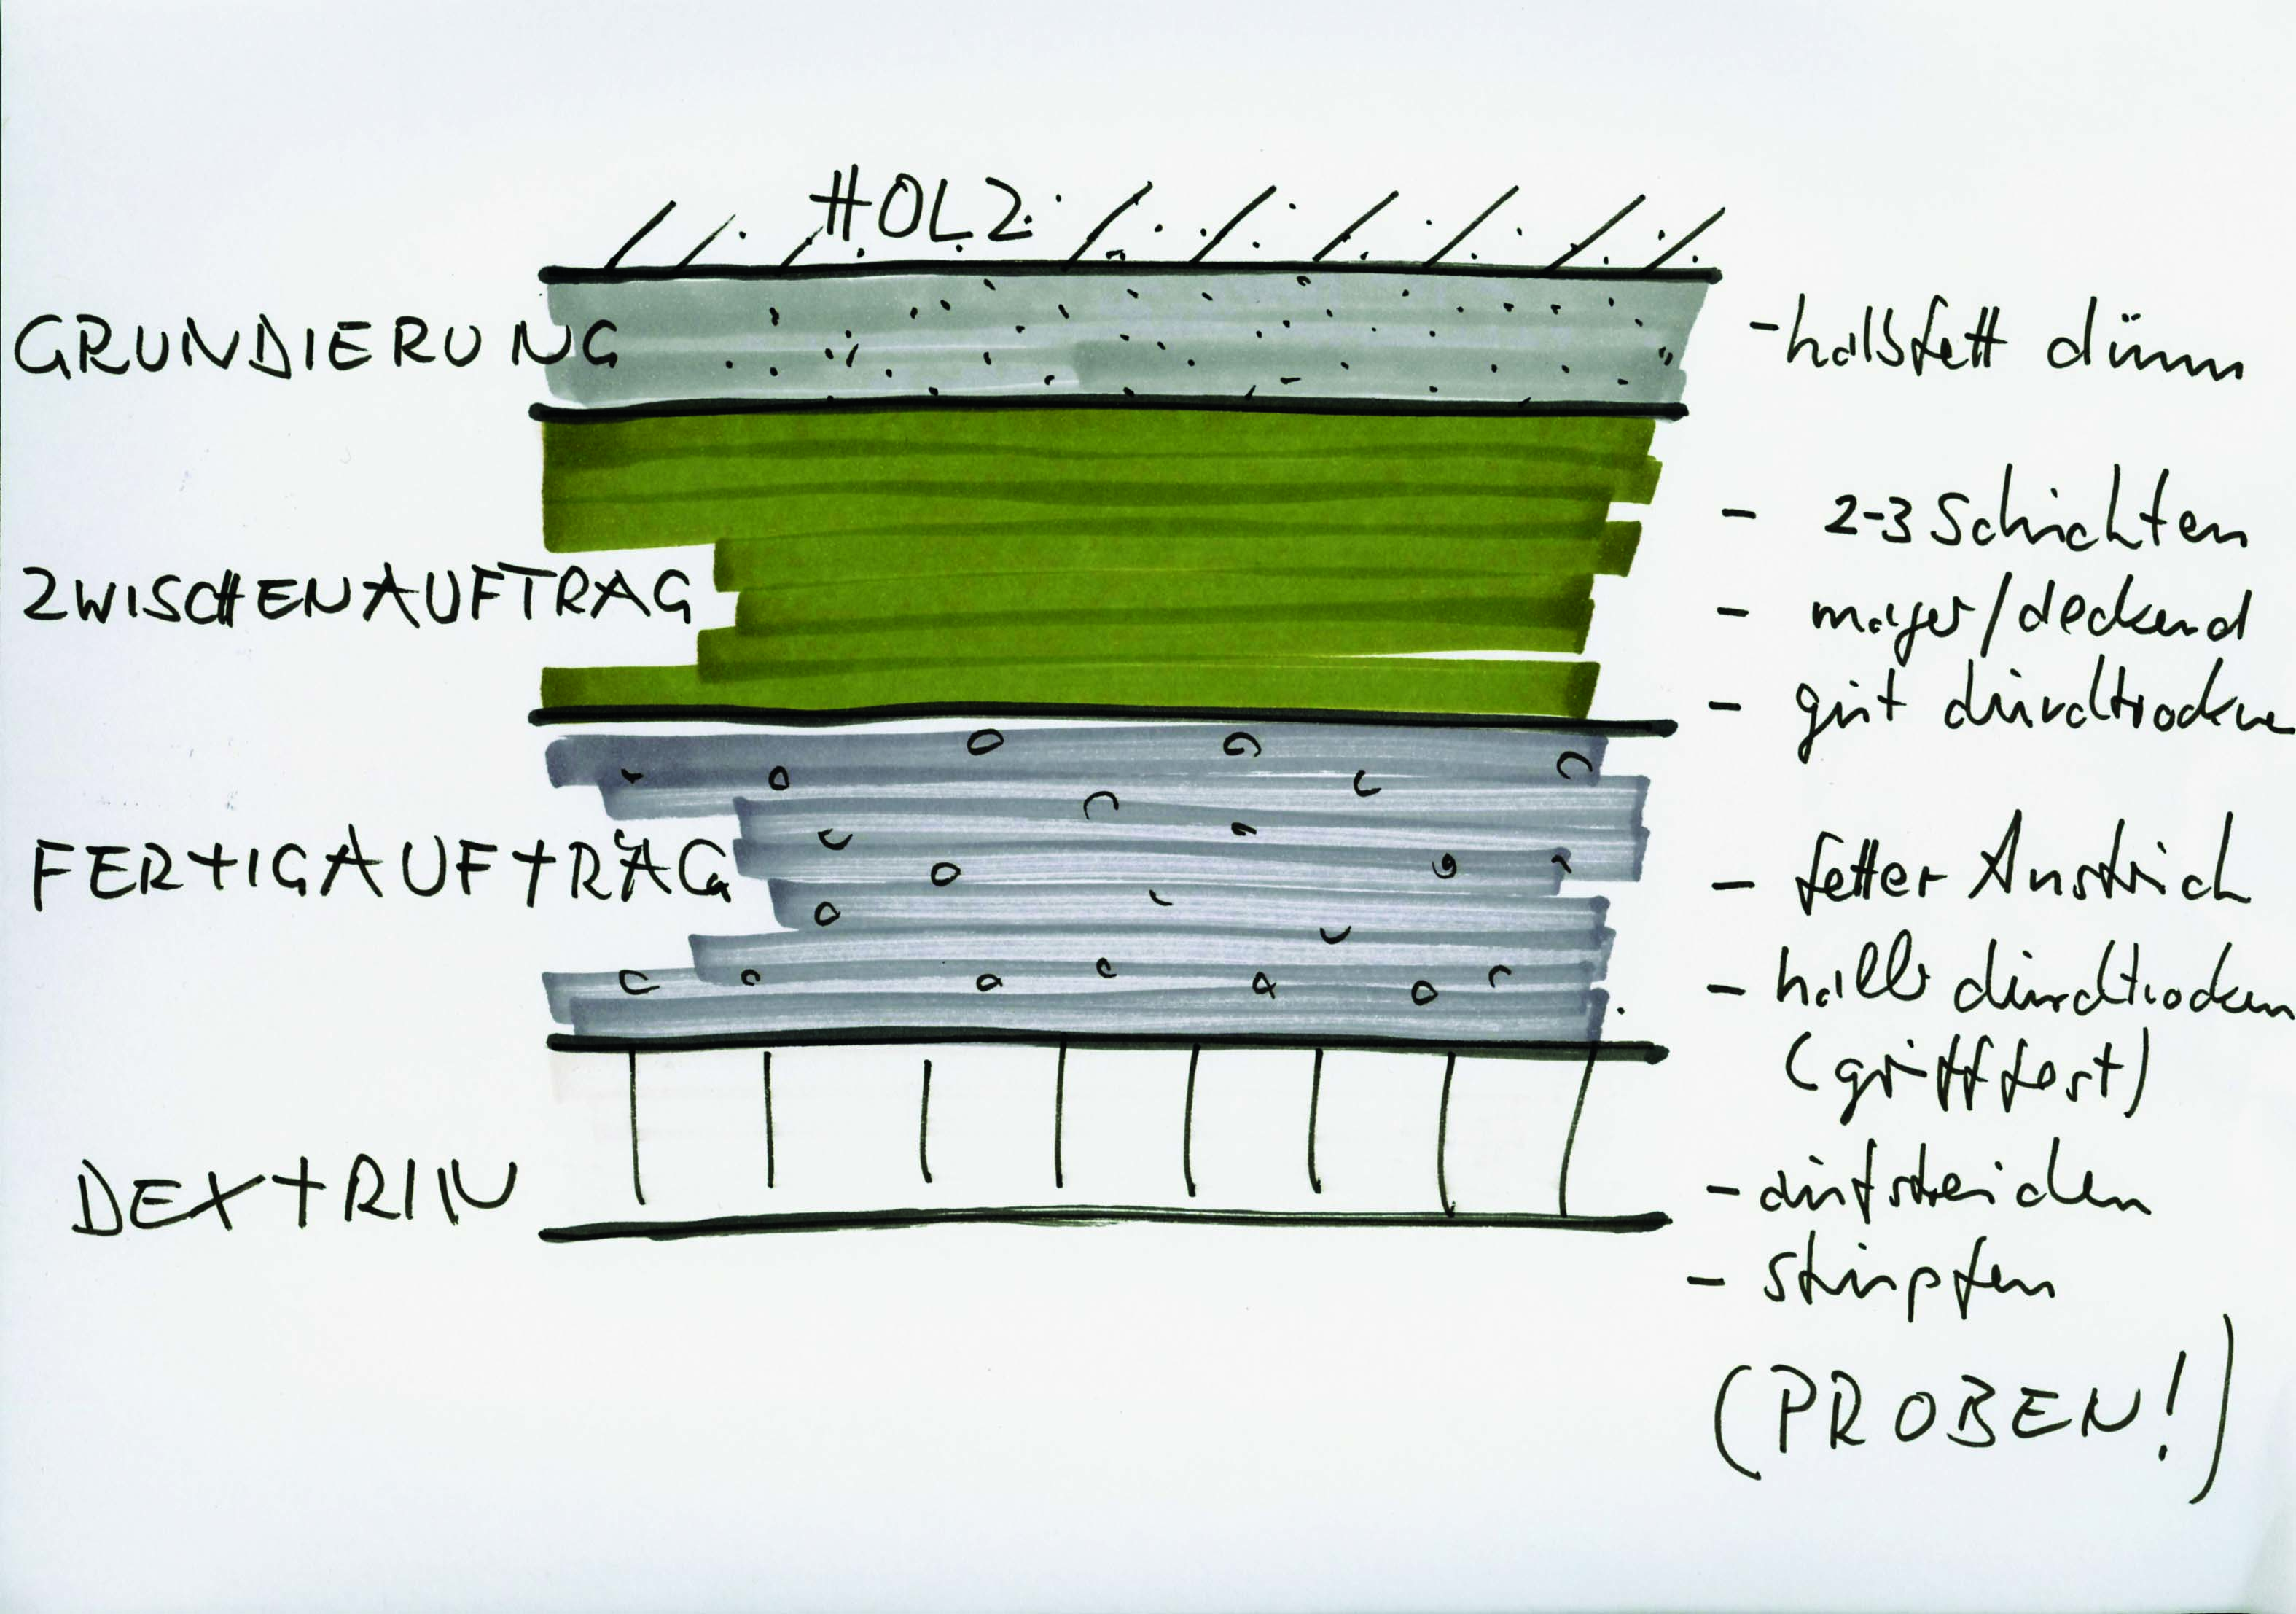 HOLZ
GRUNDIERUNG
- halbfett dünn
ZWISCHENAUFTRAG
- 2-3 Schichten
- mager/deckend
- gut durchtrocknen
FERTIGAUFTRAG
- fetter Anstrich
- halb durchtrocken
(grifffest)
DEXTRIN
- aufstreichen
- stupfen
(PROBEN!)